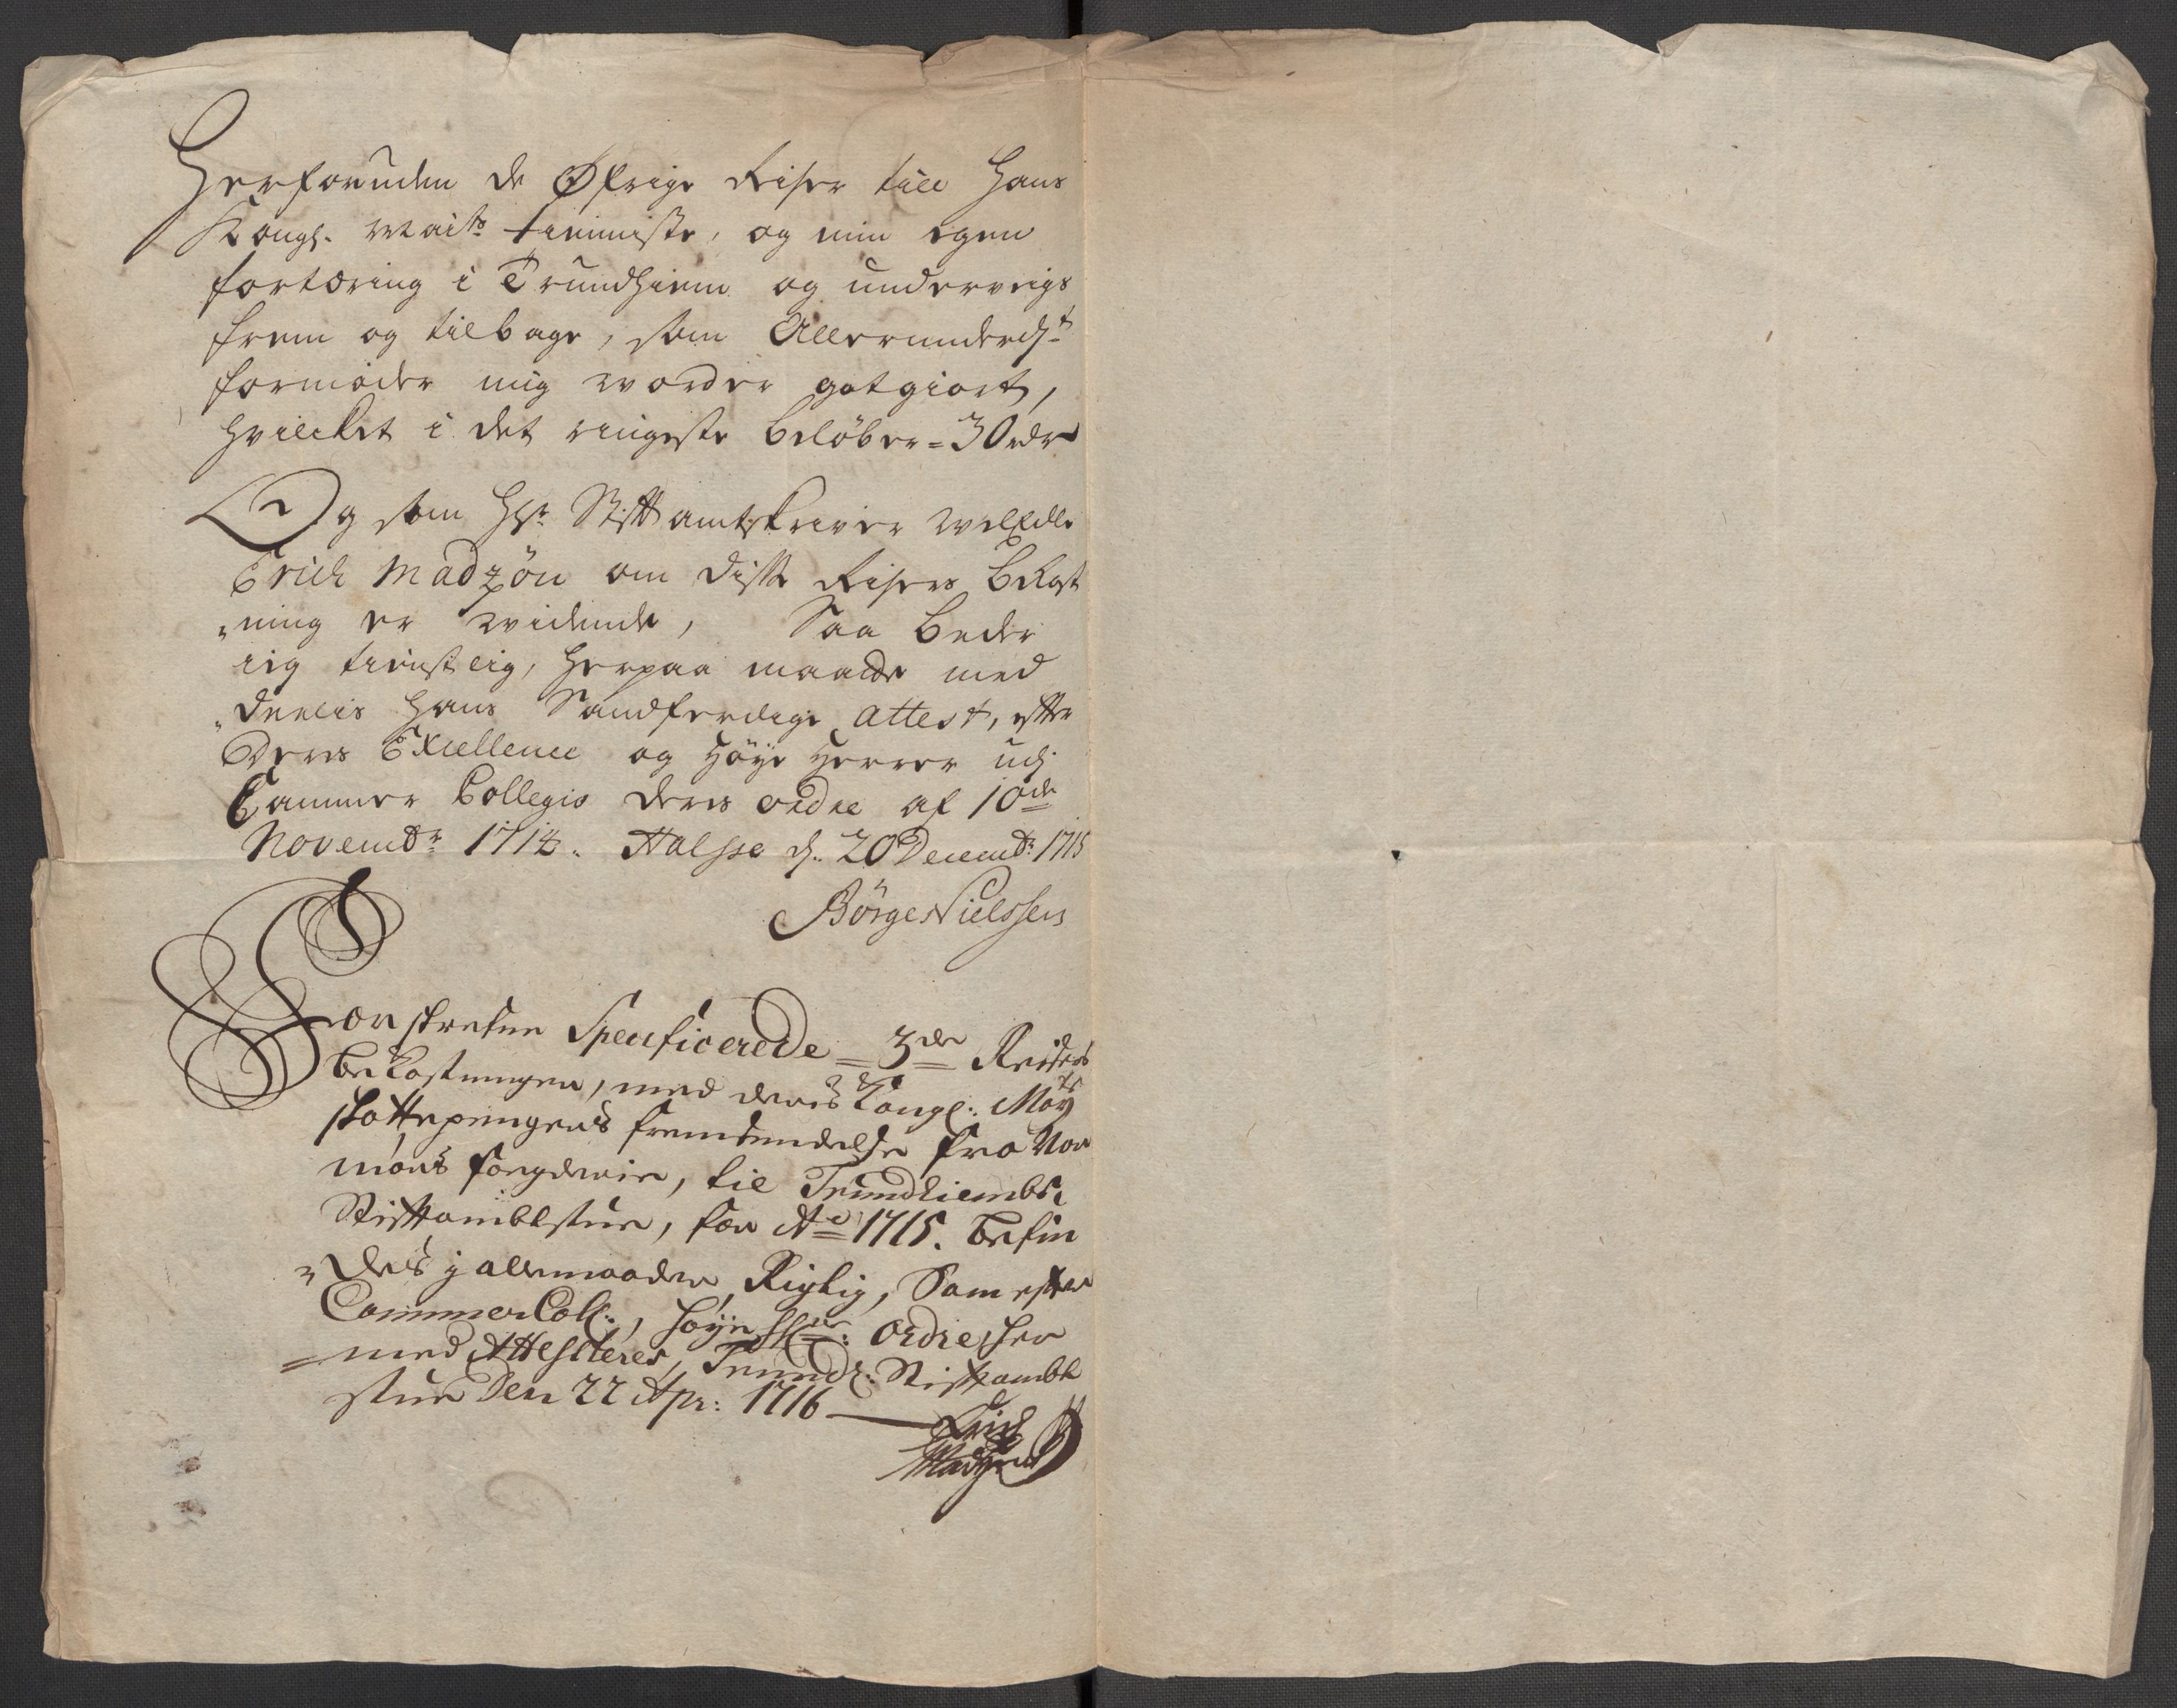 Herforuden de Øfrige Reiser till Hans
Kongl. Maits tienniste, og min egen
fortæring i Trundhiem og underveigs
frem og tilbage, som Allerunderdst
formoder mig worder gotgiort,
hvilcket i det ringeste beløber = 30 rdr
Og som Hr. Stiftamtskriver WelEdle
Erich Madzøn om disse Reisers bekost
"ning er widende, Saa beder
ieg tienstlig, herpaa maatte med
"deelis hans Sandferdige attest, efter
Deris Excellence og Høye Herrer udj
Cammer Collegio deris ordre af 10de
Novembr 1714. Halsse d. 20 Decembr 1715
Børge Nielssen
Forskrefne Specificerede = 3de Reisers
beKostninger, med deris Kongl: Mayts
skattepenges fremsendelse fra Nor
møers fogderie, til Trundhiembs
Stiftambtstue, for Ao 1715. befin
"des j allemaader Rigtig, Som efter
CammerColl:, høye Hrr: Ordre her
=med Attesteres, Trundh: Stiftambt
stue Den 22 Apr: 1716
Erich
Madzøn